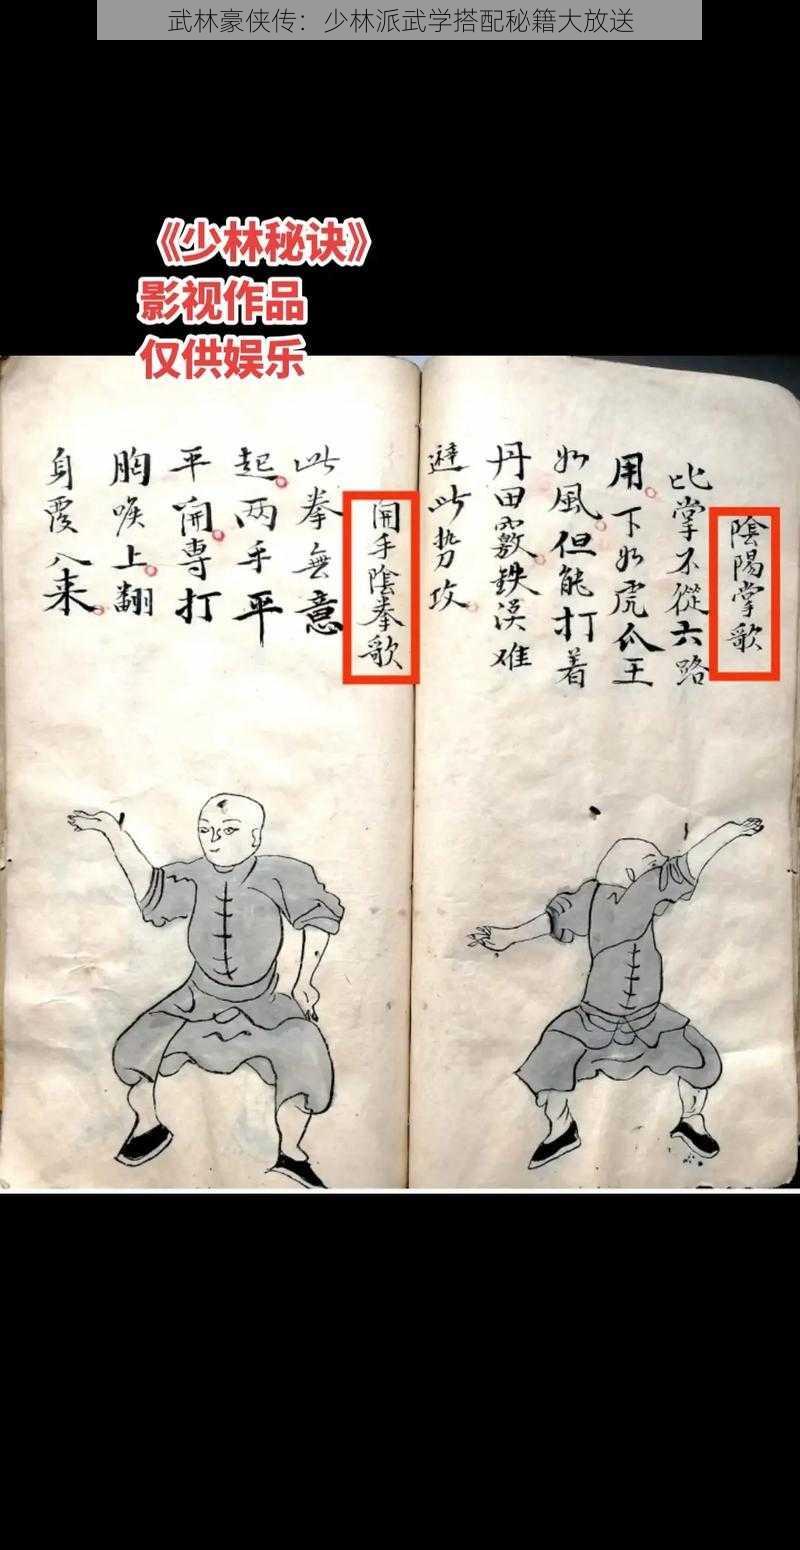 武林豪侠传：少林派武学搭配秘籍大放送
《少林秘诀》
影视作品
仅供娱乐
陰陽掌歌
此掌不從六路
用下如虎爪王
如風但能打着
丹田竅鉄漢难
避此势攻
開手陰拳歌
此拳無意
起两手平
平開專打
胸喉上翻
身覆入来